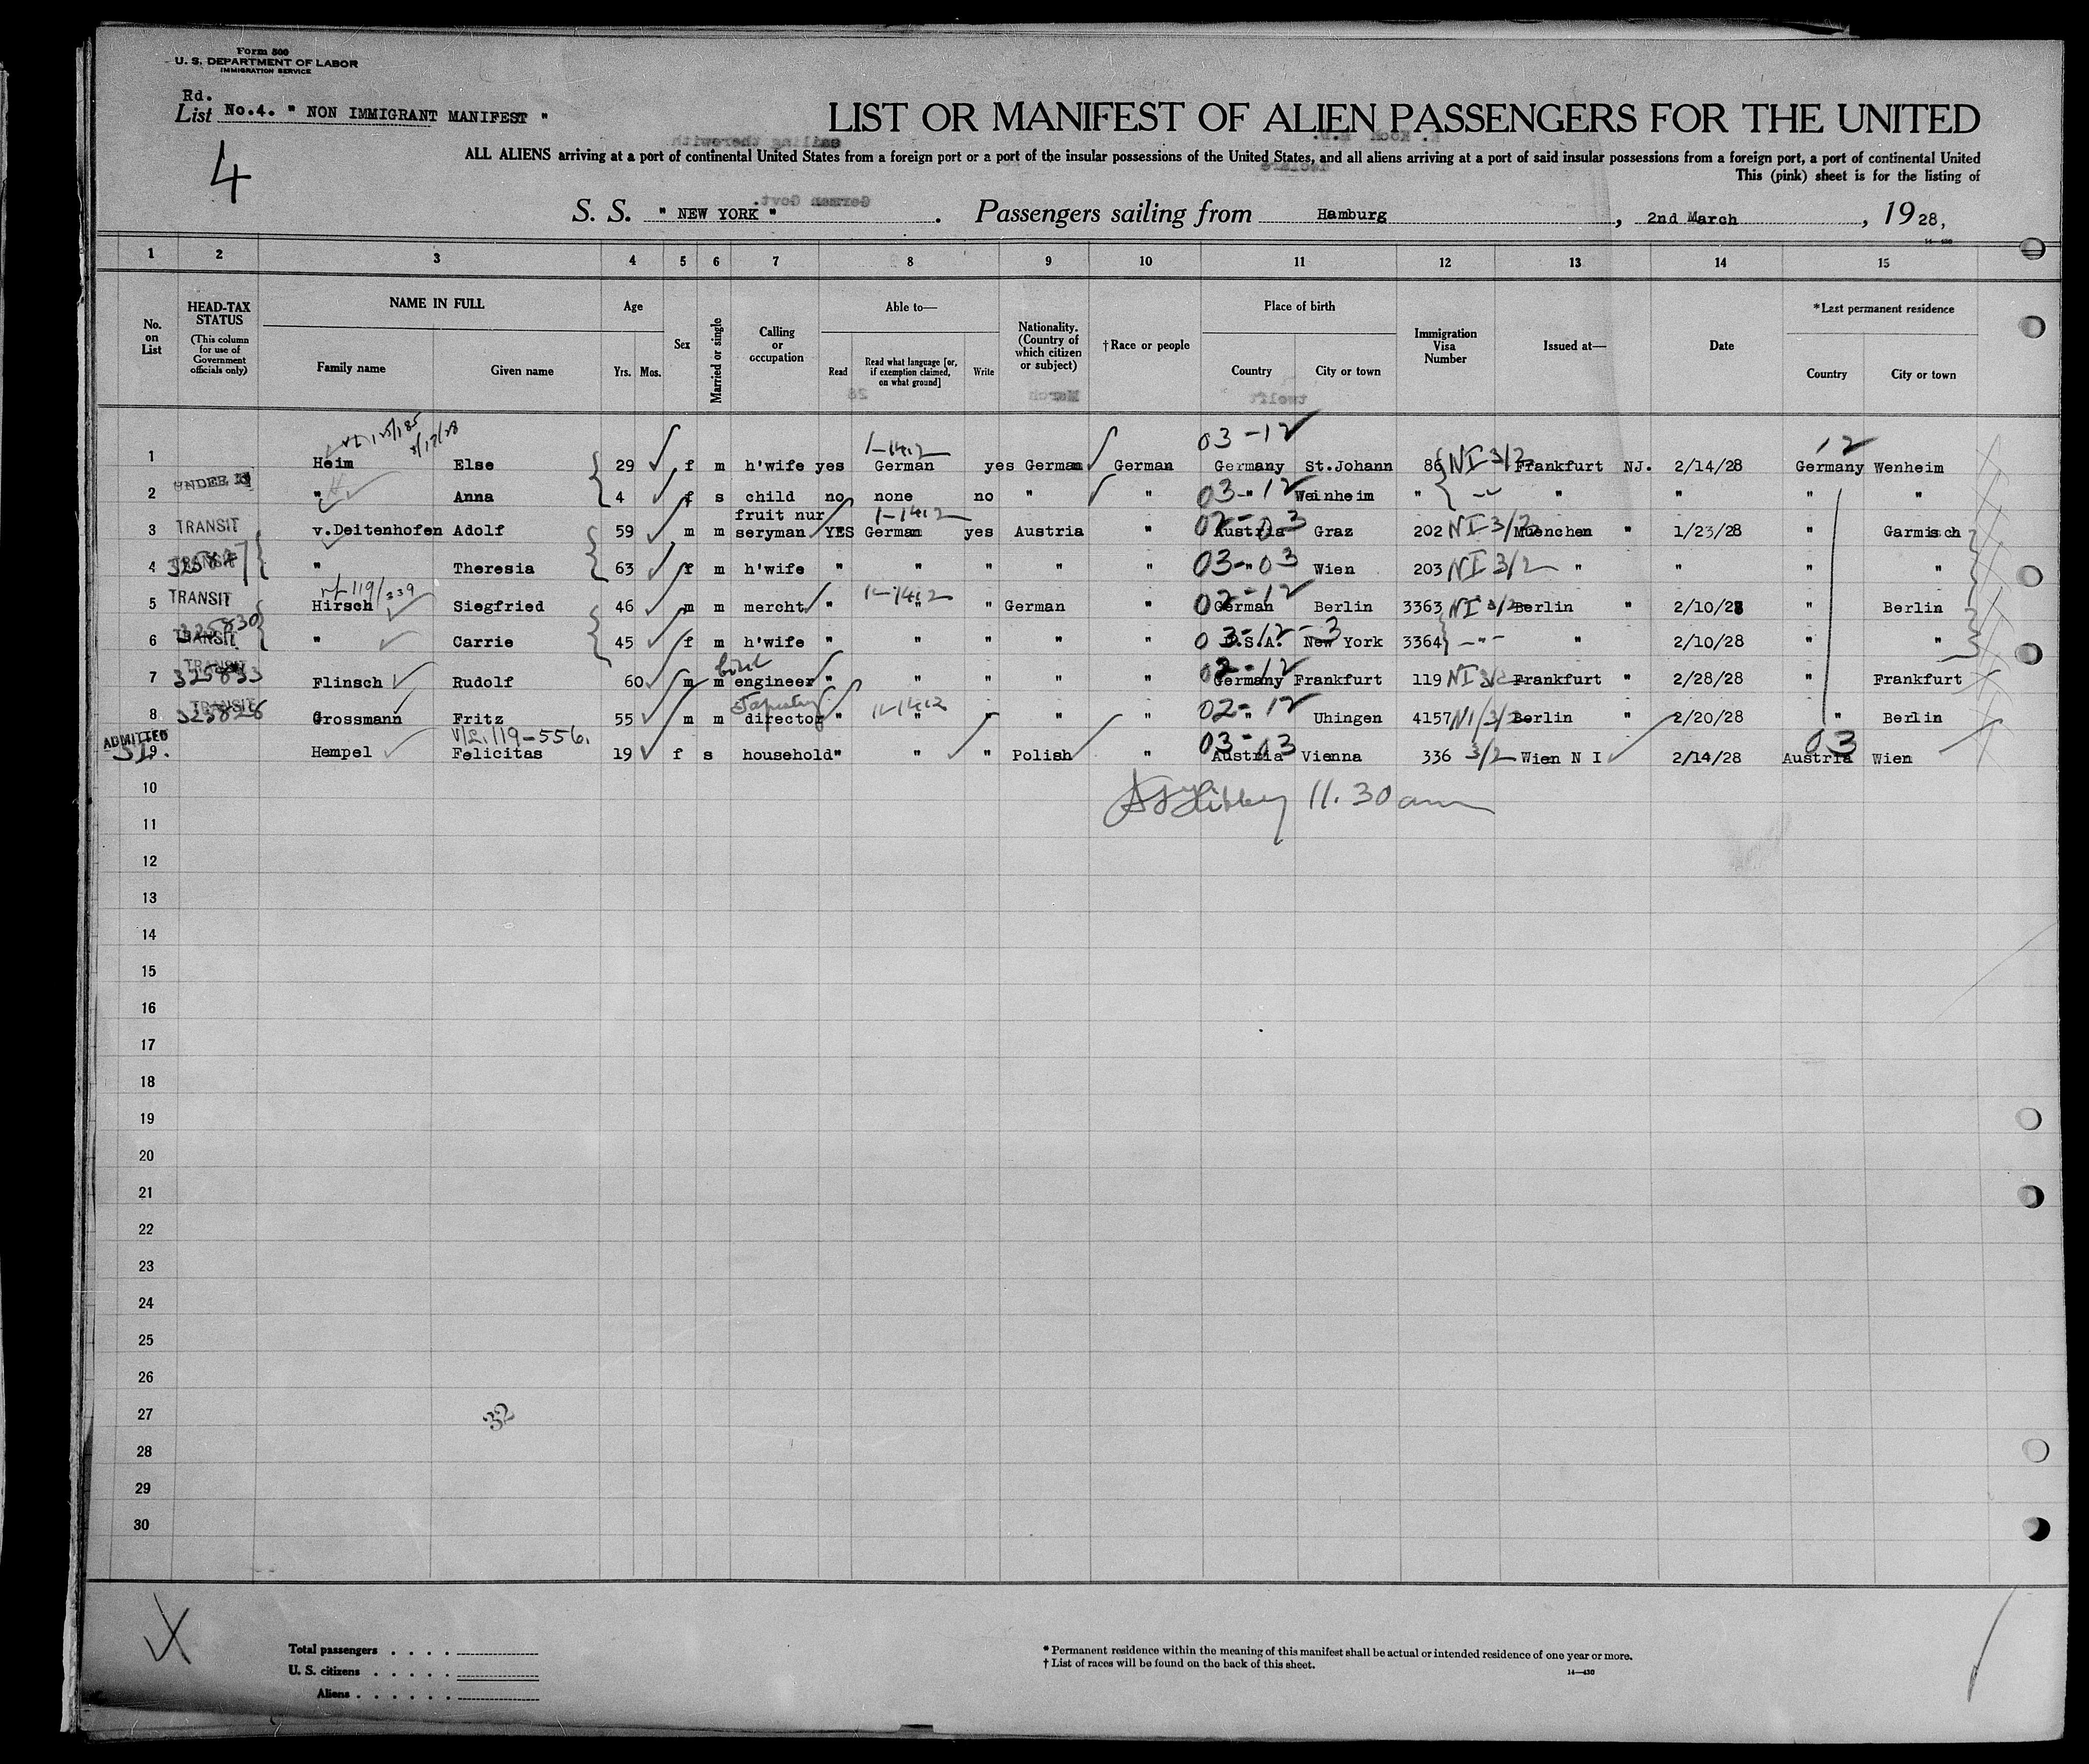 Form 500
U. S. DEPARTMENT OF LABOR
IMMIGRATION SERVICE
Rd.
List No.4. " NON IMMIGRANT MANIFEST "
4
LIST OR MANIFEST OF ALIEN PASSENGERS FOR THE UNITED
ALL ALIENS arriving at a port of continental United States from a foreign port or a port of the insular possessions of the United States, and all aliens arriving at a port of said insular possessions from a foreign port, a port of continental United
This (pink) sheet is for the listing of
S. S. " NEW YORK " . Passengers sailing from Hamburg , 2nd March , 19 28,
14—430
1 2 3 4 5 6 7 8 9 10 11 12 13 14 15
No. on List
HEAD-TAX STATUS (This column for use of Government officials only)
NAME IN FULL
Family name Given name
Age
Yrs. Mos.
Sex
Married or single
Calling or occupation
Able to—
Read Read what language [or, if exemption claimed, on what ground] Write
Nationality. (Country of which citizen or subject)
†Race or people
Place of birth
Country City or town
Immigration Visa Number
Issued at—
Date
*Last permanent residence
Country City or town
3/17/28 1-1412 03-12 12
1 Heim Else 29 f m h'wife yes German yes German German Germany St.Johann 86 NI 3/2 Frankfurt NJ. 2/14/28 Germany Wenheim
2 UNDER " Anna 4 f s child no none no " " 03-12 " Weinheim " " " " " "
fruit nur 1-1412 02-03
3 TRANSIT v.Deitenhofen Adolf 59 m m seryman YES German yes Austria " Austria Graz 202 NI 3/2 Muenchen " 1/23/28 " Garmisch
4 TRANSIT " Theresia 63 f m h'wife " " " " " 03-03 " Wien 203 NI 3/2 " " " "
119/339 1-1412 02-12
5 TRANSIT Hirsch Siegfried 46 m m mercht " " " German " German Berlin 3363 NI 3/2 Berlin " 2/10/28 " Berlin
325830 03-12-3
6 TRANSIT " Carrie 45 f m h'wife " " " " " U.S.A. New York 3364 " " 2/10/28 " "
TRANSIT 02-12
7 325833 Flinsch Rudolf 60 m m engineer " " " " " Germany Frankfurt 119 NI 3/2 Frankfurt " 2/28/28 " Frankfurt
TRANSIT Tapestry 1-1412 02-12
8 325828 Grossmann Fritz 55 m m director " " " " " " Uhingen 4157 NI 3/2 Berlin " 2/20/28 " Berlin
ADMITTED V/L.119-556. 03-03 03
9 Hempel Felicitas 19 f s household " " " Polish " Austria Vienna 336 3/2 Wien N I 2/14/28 Austria Wien
10 11.30 am
11
12
13
14
15
16
17
18
19
20
21
22
23
24
25
26
27 32
28
29
30
Total passengers . . . .
U. S. citizens . . . . .
Aliens . . . . . .
* Permanent residence within the meaning of this manifest shall be actual or intended residence of one year or more.
† List of races will be found on the back of this sheet.
14—430